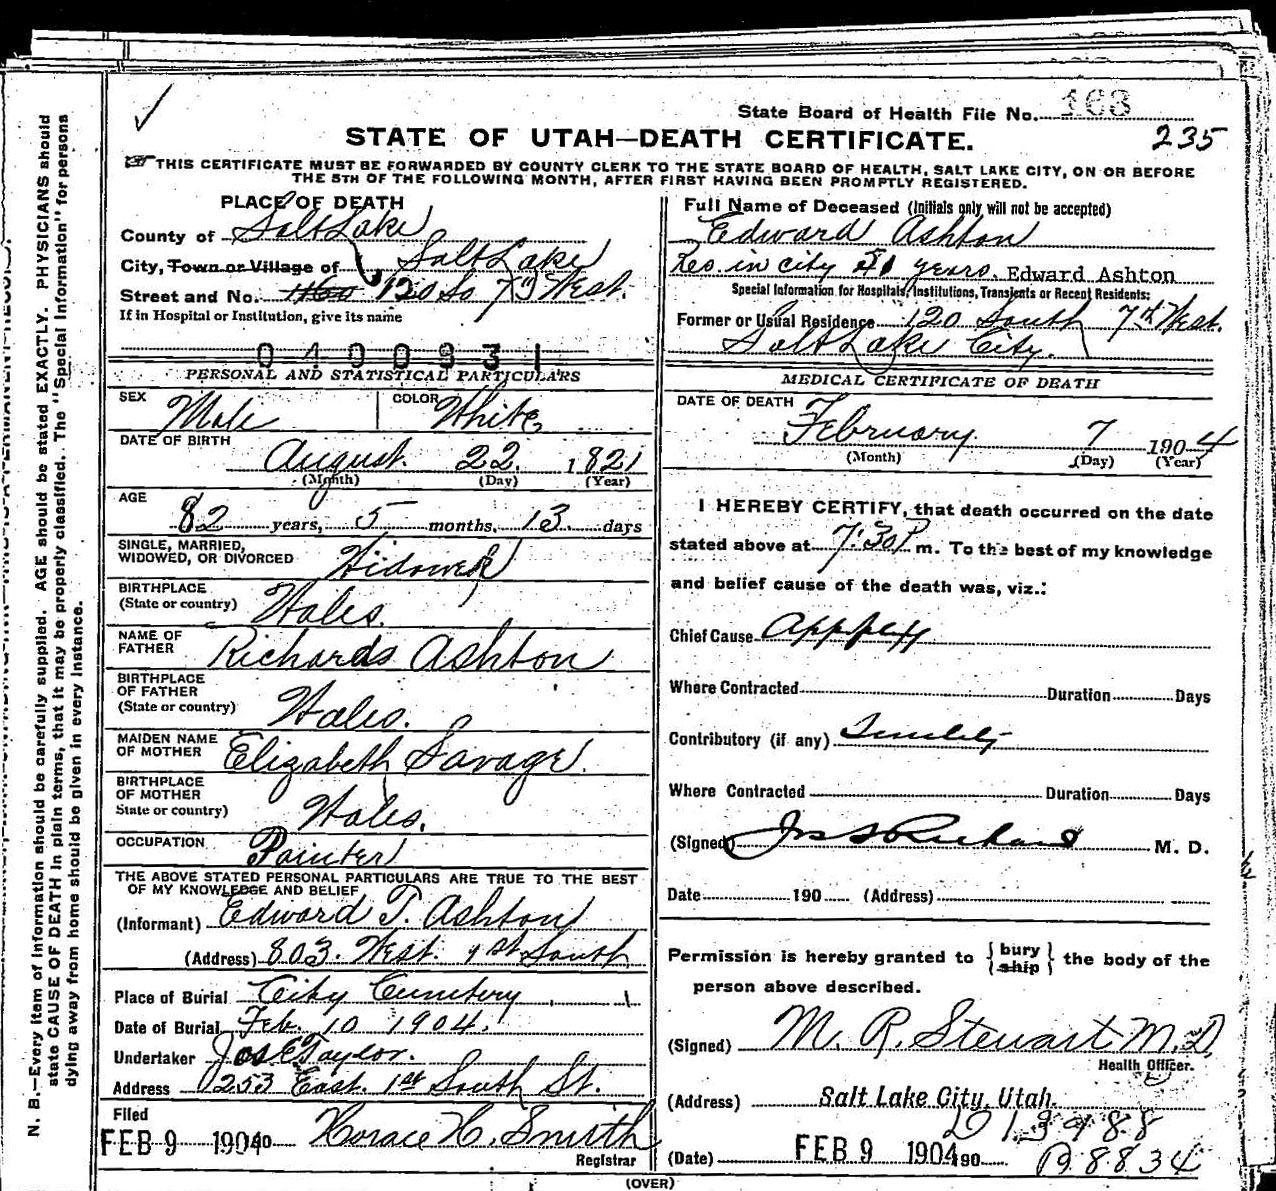 State Board of Health File No. 168
235
STATE OF UTAH—DEATH CERTIFICATE.
THIS CERTIFICATE MUST BE FORWARDED BY COUNTY CLERK TO THE STATE BOARD OF HEALTH, SALT LAKE CITY, ON OR BEFORE
THE 5TH OF THE FOLLOWING MONTH, AFTER FIRST HAVING BEEN PROMPTLY REGISTERED.
N. B.—Every item of information should be carefully supplied. AGE should be stated EXACTLY. PHYSICIANS should
state CAUSE OF DEATH in plain terms, that it may be properly classified. The "Special Information" for persons
dying away from home should be given in every instance.
PLACE OF DEATH
County of Salt Lake
City, Town or Village of Salt Lake
Street and No. 1160 120 So 7th West.
If in Hospital or Institution, give its name
0400831
PERSONAL AND STATISTICAL PARTICULARS
SEX Male COLOR White
DATE OF BIRTH
August 22 1821
(Month) (Day) (Year)
AGE
82 years, 5 months, 13 days
SINGLE, MARRIED,
WIDOWED, OR DIVORCED Widower
BIRTHPLACE
(State or country) Wales.
NAME OF
FATHER Richards Ashton
BIRTHPLACE
OF FATHER
(State or country) Wales.
MAIDEN NAME
OF MOTHER Elizabeth Savage.
BIRTHPLACE
OF MOTHER
State or country) Wales.
OCCUPATION Painter
THE ABOVE STATED PERSONAL PARTICULARS ARE TRUE TO THE BEST
OF MY KNOWLEDGE AND BELIEF
(Informant) Edward T. Ashton
(Address) 803. West. 1st South
Place of Burial City Cemetery
Date of Burial Feb. 10 1904.
Undertaker Jos E Taylor.
Address 253 East. 1st South St.
Filed
FEB 9 1904 Horace H. Smith
Registrar
Full Name of Deceased (Initials only will not be accepted)
Edward Ashton
Res. in city 51 years. Edward Ashton
Special Information for Hospitals, Institutions, Transients or Recent Residents:
Former or Usual Residence 120 South 7th West.
Salt Lake City.
MEDICAL CERTIFICATE OF DEATH
DATE OF DEATH
February 7 1904
(Month) (Day) (Year)
I HEREBY CERTIFY, that death occurred on the date
stated above at 7:30 P m. To the best of my knowledge
and belief cause of the death was, viz.:
Chief Cause
Where Contracted Duration Days
Contributory (if any)
Where Contracted Duration Days
(Signed) M. D.
Date 190 (Address)
Permission is hereby granted to { bury
ship } the body of the
person above described.
(Signed) M. R. Stewart M.D.
Health Officer.
(Address) Salt Lake City, Utah.
D 13988
(Date) FEB 9 1904 190
B 8834
(OVER)